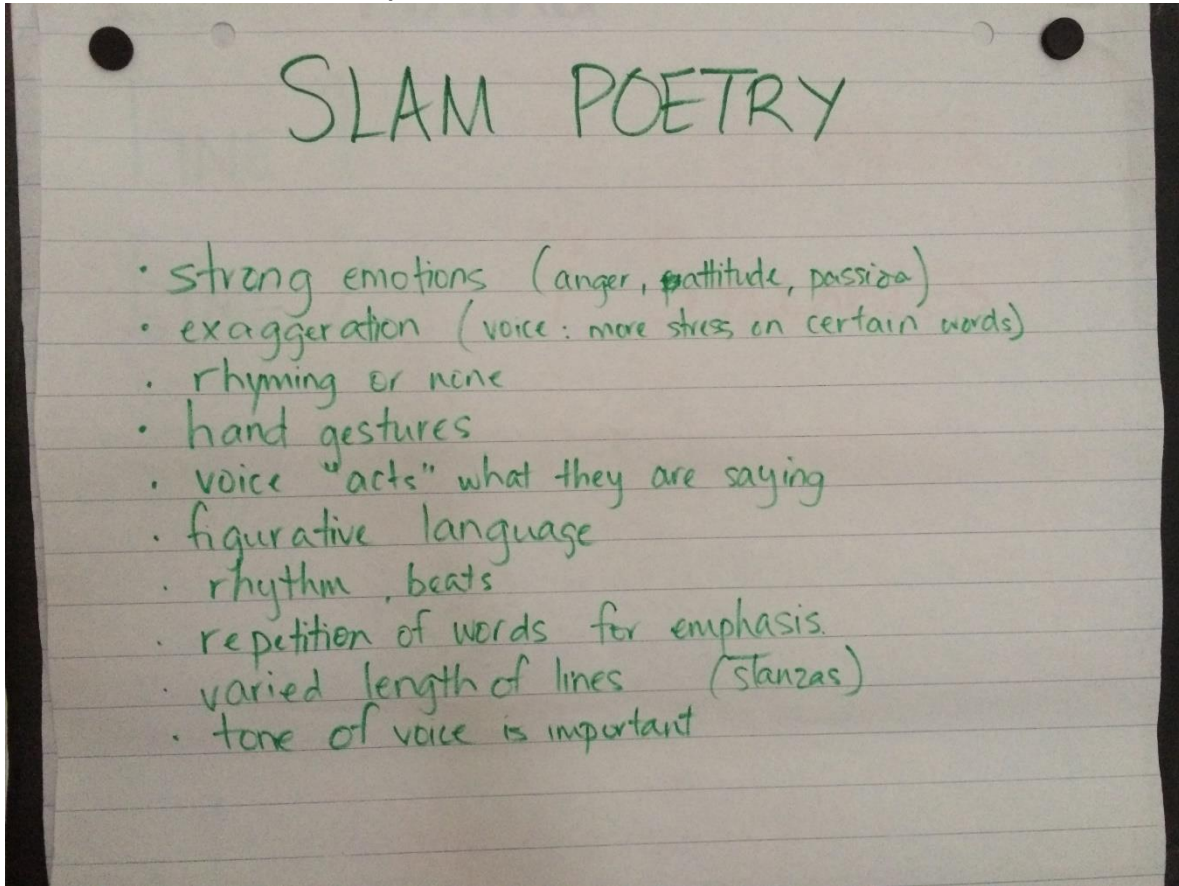 SLAM POETRY
· strong emotions (anger, attitude, passion)
· exaggeration (voice: more stress on certain words)
· rhyming or none
· hand gestures
· voice "acts" what they are saying
· figurative language
· rhythm, beats
· repetition of words for emphasis.
· varied length of lines (stanzas)
· tone of voice is important